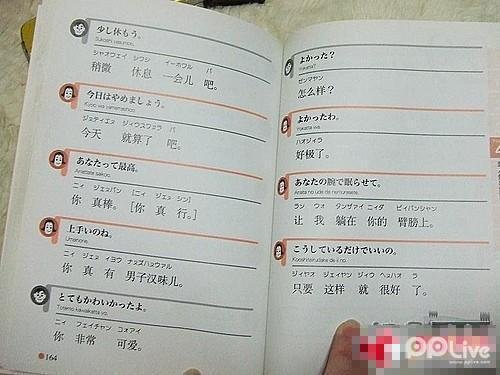 少し休もう。
Sukoshi yasumoo.
シャオウェイ シウシ イーホウル バ
稍微 休息 一会儿 吧。
今日はやめましょう。
Kyoo wa yamemashoo.
ジェティエヌ ジィウスウァラ バ
今天 就算了 吧。
あなたって最高。
Anatatte saikoo.
ニィ ジェヌバン [ニィ ジェヌ シン]
你 真棒。[你 真 行。]
上手いのね。
Umainone.
ニィ ジェヌ イヨウ ナヌズハヌウァル
你 真 有 男子汉味儿。
とてもかわいかったよ。
Totemo kawaikatta yo.
ニィ フェイチャン コォアイ
你 非常 可爱。
164
よかった？
Yokatta?
ゼンマヤン
怎么样？
よかったわ。
Yokatta wa.
ハオジィラ
好极了。
あなたの腕で眠らせて。
Anata no ude de nemurasete.
ラン ウォ タンザァイ ニィダ ビィバンシャン
让 我 躺在 你的 臂膀上。
こうしているだけでいいの。
Kooshiteirudake de ii no.
ジィヤオ ジェイヤン ジィウ ヘェハオ ラ
只要 这样 就 很好 了。
PPLive
www.pplive.com